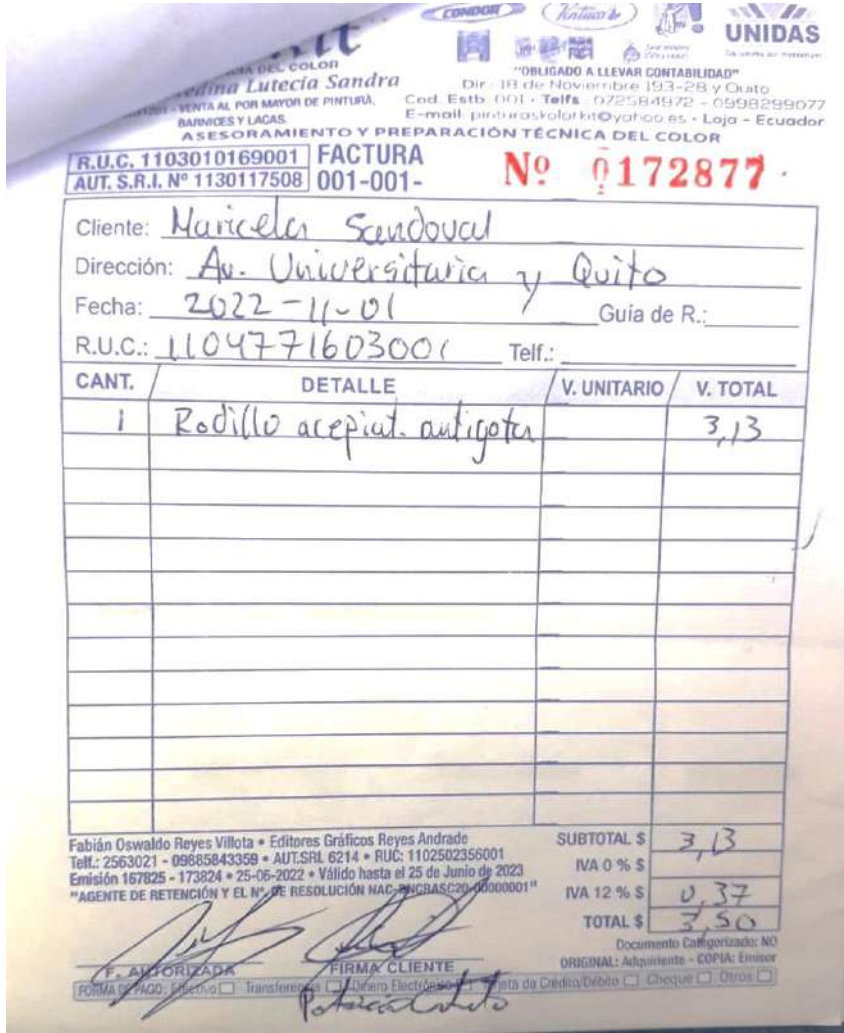 CONDOR
UNIDAS
DEL COLOR
edina Lutecia Sandra
"OBLIGADO A LLEVAR CONTABILIDAD"
Dir.: 18 de Noviembre 193-28 y Quito
VENTA AL POR MAYOR DE PINTURA,
Cod. Estb. 001 • Telfs.: 072584972 - 0998299077
BARNICES Y LACAS.
E-mail: pinturaskolorkit@yahoo.es • Loja - Ecuador
ASESORAMIENTO Y PREPARACIÓN TÉCNICA DEL COLOR
R.U.C. 1103010169001 FACTURA
AUT. S.R.I. Nº 1130117508 001-001- Nº 0172877
Cliente: Maricela Sandoval
Dirección: Av. Universitaria y Quito
Fecha: 2022-11-01 Guía de R.:
R.U.C.: 1104771603001 Telf.:
CANT. DETALLE V. UNITARIO V. TOTAL
1 Rodillo acepiat. antigota 3,13
Fabián Oswaldo Reyes Villota • Editores Gráficos Reyes Andrade
Telf.: 2563021 - 09885843359 • AUT.SRI. 6214 • RUC: 1102502356001
Emisión 167825 - 173824 • 25-06-2022 • Válido hasta el 25 de Junio de 2023
"AGENTE DE RETENCIÓN Y EL Nº. DE RESOLUCIÓN NAC-DNCRASC20-00000001"
SUBTOTAL $ 3,13
IVA 0 % $
IVA 12 % $ 0,37
TOTAL $ 3,50
Documento Categorizado: NO
ORIGINAL: Adquiriente - COPIA: Emisor
F. AUTORIZADA FIRMA CLIENTE
FORMA DE PAGO: Efectivo Transferencia Dinero Electrónico Tarjeta de Crédito/Débito Cheque Otros